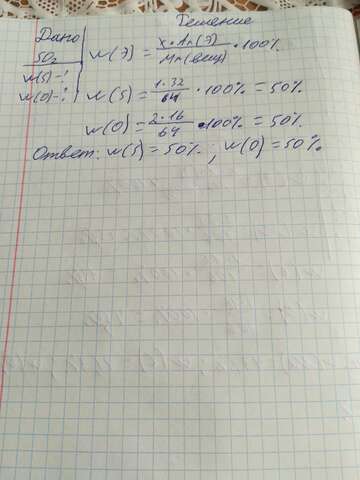 Решение
Дано
SO₂
w(S)-?
w(O)-?
w(Э) = x·Ar(Э) / Mr(вещ) · 100%
w(S) = 1·32 / 64 · 100% = 50%
w(O) = 2·16 / 64 · 100% = 50%.
Ответ: w(S) = 50%; w(O) = 50%.